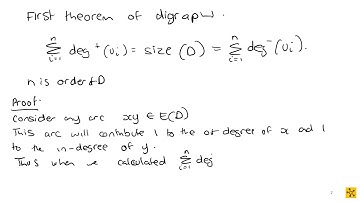 First theorem of digraph.
∑_{i=1}^{n} deg⁺(v_i) = size (D) = ∑_{i=1}^{n} deg⁻(v_i).
n is order of D
Proof.
Consider any arc xy ∈ E(D)
This arc will contribute 1 to the out degree of x and 1
to the in-degree of y.
Thus when we calculated ∑_{i=1}^{n} deg